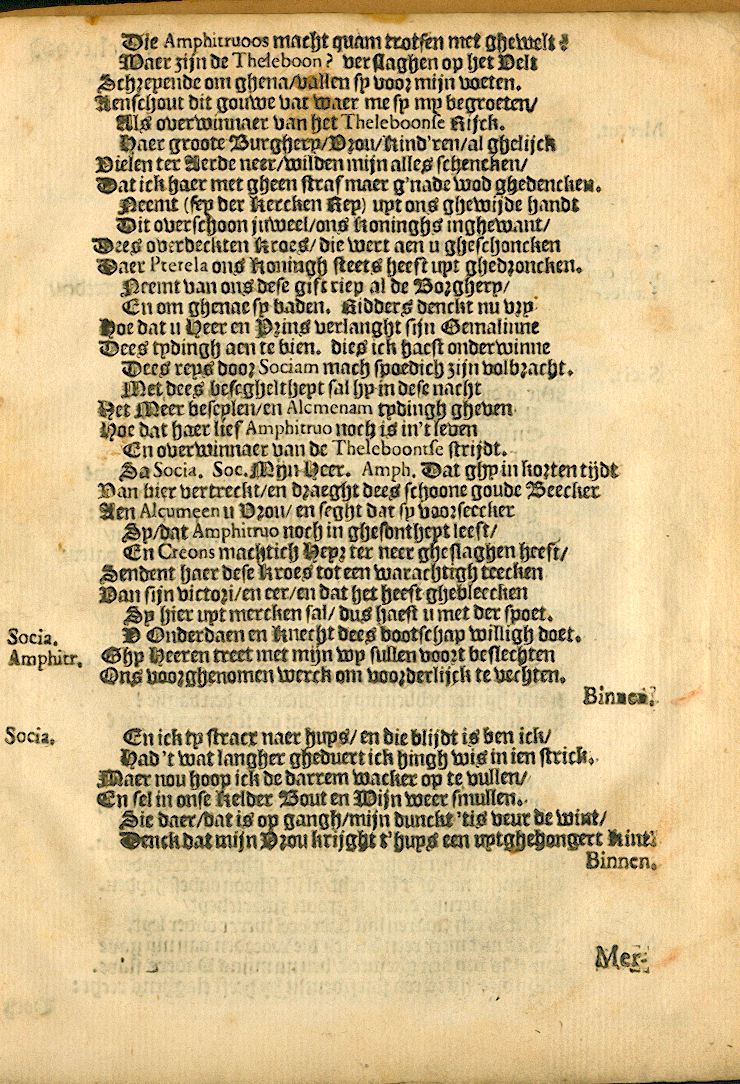 Die Amphitruoos macht quam trotsen met ghewelt?
Maer zijn de Theleboon? verslaghen op het Velt
Schreyende om ghena/vallen sy voor mijn voeten.
Aenschout dit gouwe vat waer me sy my begroeten/
Als overwinnaer van het Theleboonse Rijck.
Haer groote Burghery/Vrou/Kind'ren/al ghelijck
Vielen ter Aerde neer/wilden mijn alles schencken/
Dat ick haer met gheen straf maer g'nade wod ghedencken.
Neemt (sey der Kercken Key) uyt ons ghewijde handt
Dit overschoon juweel/ons Koninghs inghewant/
Dees overdeckten Kroes/die wert aen u gheschoncken
Daer Pterela ons Koningh steets heeft uyt ghedroncken.
Neemt van ons dese gift riep al de Borghery/
En om ghenae sy baden. Ridders denckt nu vry
Hoe dat u Heer en Prins verlanght sijn Gemalinne
Dees tydingh aen te bien. dies ick haest onderwinne
Dees reys door Sociam mach spoedich zijn volbracht.
Met dees besegheltheyt sal hy in dese nacht
Het Meer beseylen/en Alcmenam tydingh gheven
Hoe dat haer lief Amphitruo noch is in't leven
En overwinnaer van de Theleboontse strijdt.
Sa Socia. Soc. Mijn Heer. Amph. Dat ghy in korten tijdt
Van hier vertreckt/en draeght dees schoone goude Beecker
Aen Alcumeen u Vrou/en seght dat sy voorseecker
Sy/dat Amphitruo noch in ghesontheyt leeft/
En Creons machtich Heyr ter neer gheslaghen heeft/
Sendent haer dese Kroes tot een warachtigh teecken
Van sijn victori/en eer/en dat het heeft ghebleecken
Sy hier uyt mercken sal/dus haest u met der spoet.
Socia. V Onderdaen en Knecht dees bootschap willigh doet.
Amphitr. Ghy Heeren treet met mijn wy sullen voort beslechten
Ons voorghenomen werck om voorderlijck te vechten.
Binnen.
Socia. En ick ty stracx naer huys/en die blijdt is ben ick/
Had't wat langher gheduert ick hingh wis in ien strick.
Maer nou hoop ick de darrem wacker op te vullen/
En sel in onse Kelder Bout en Wijn weer smullen.
Sie daer/dat is op gangh/mijn dunckt 'tis veur de wint/
Denck dat mijn Vrou krijght t'huys een uytghehongert Kint.
Binnen.
Mer-